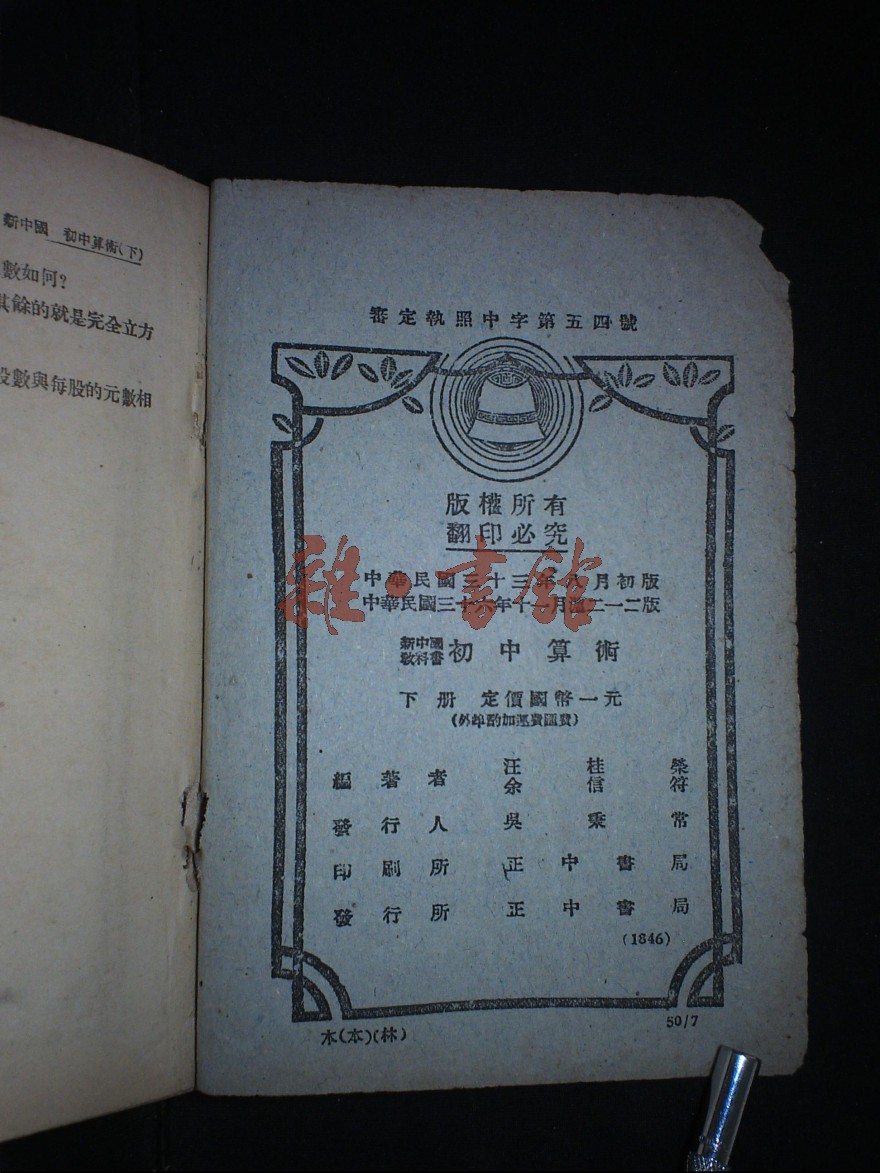 新中國 初中算術(下)
數如何?
其餘的就是完全立方
股數與每股的元數相
審定執照中字第五四號
版權所有
翻印必究
雜·書館
中華民國三十三年八月初版
中華民國三十六年十一月滬二一二版
新中國
教科書 初中算術
下册 定價國幣一元
(外埠酌加運費匯費)
編著者 汪桂榮
余信符
發行人 吳秉常
印刷所 正中書局
發行所 正中書局
(1846)
木(本)(林)
50/7